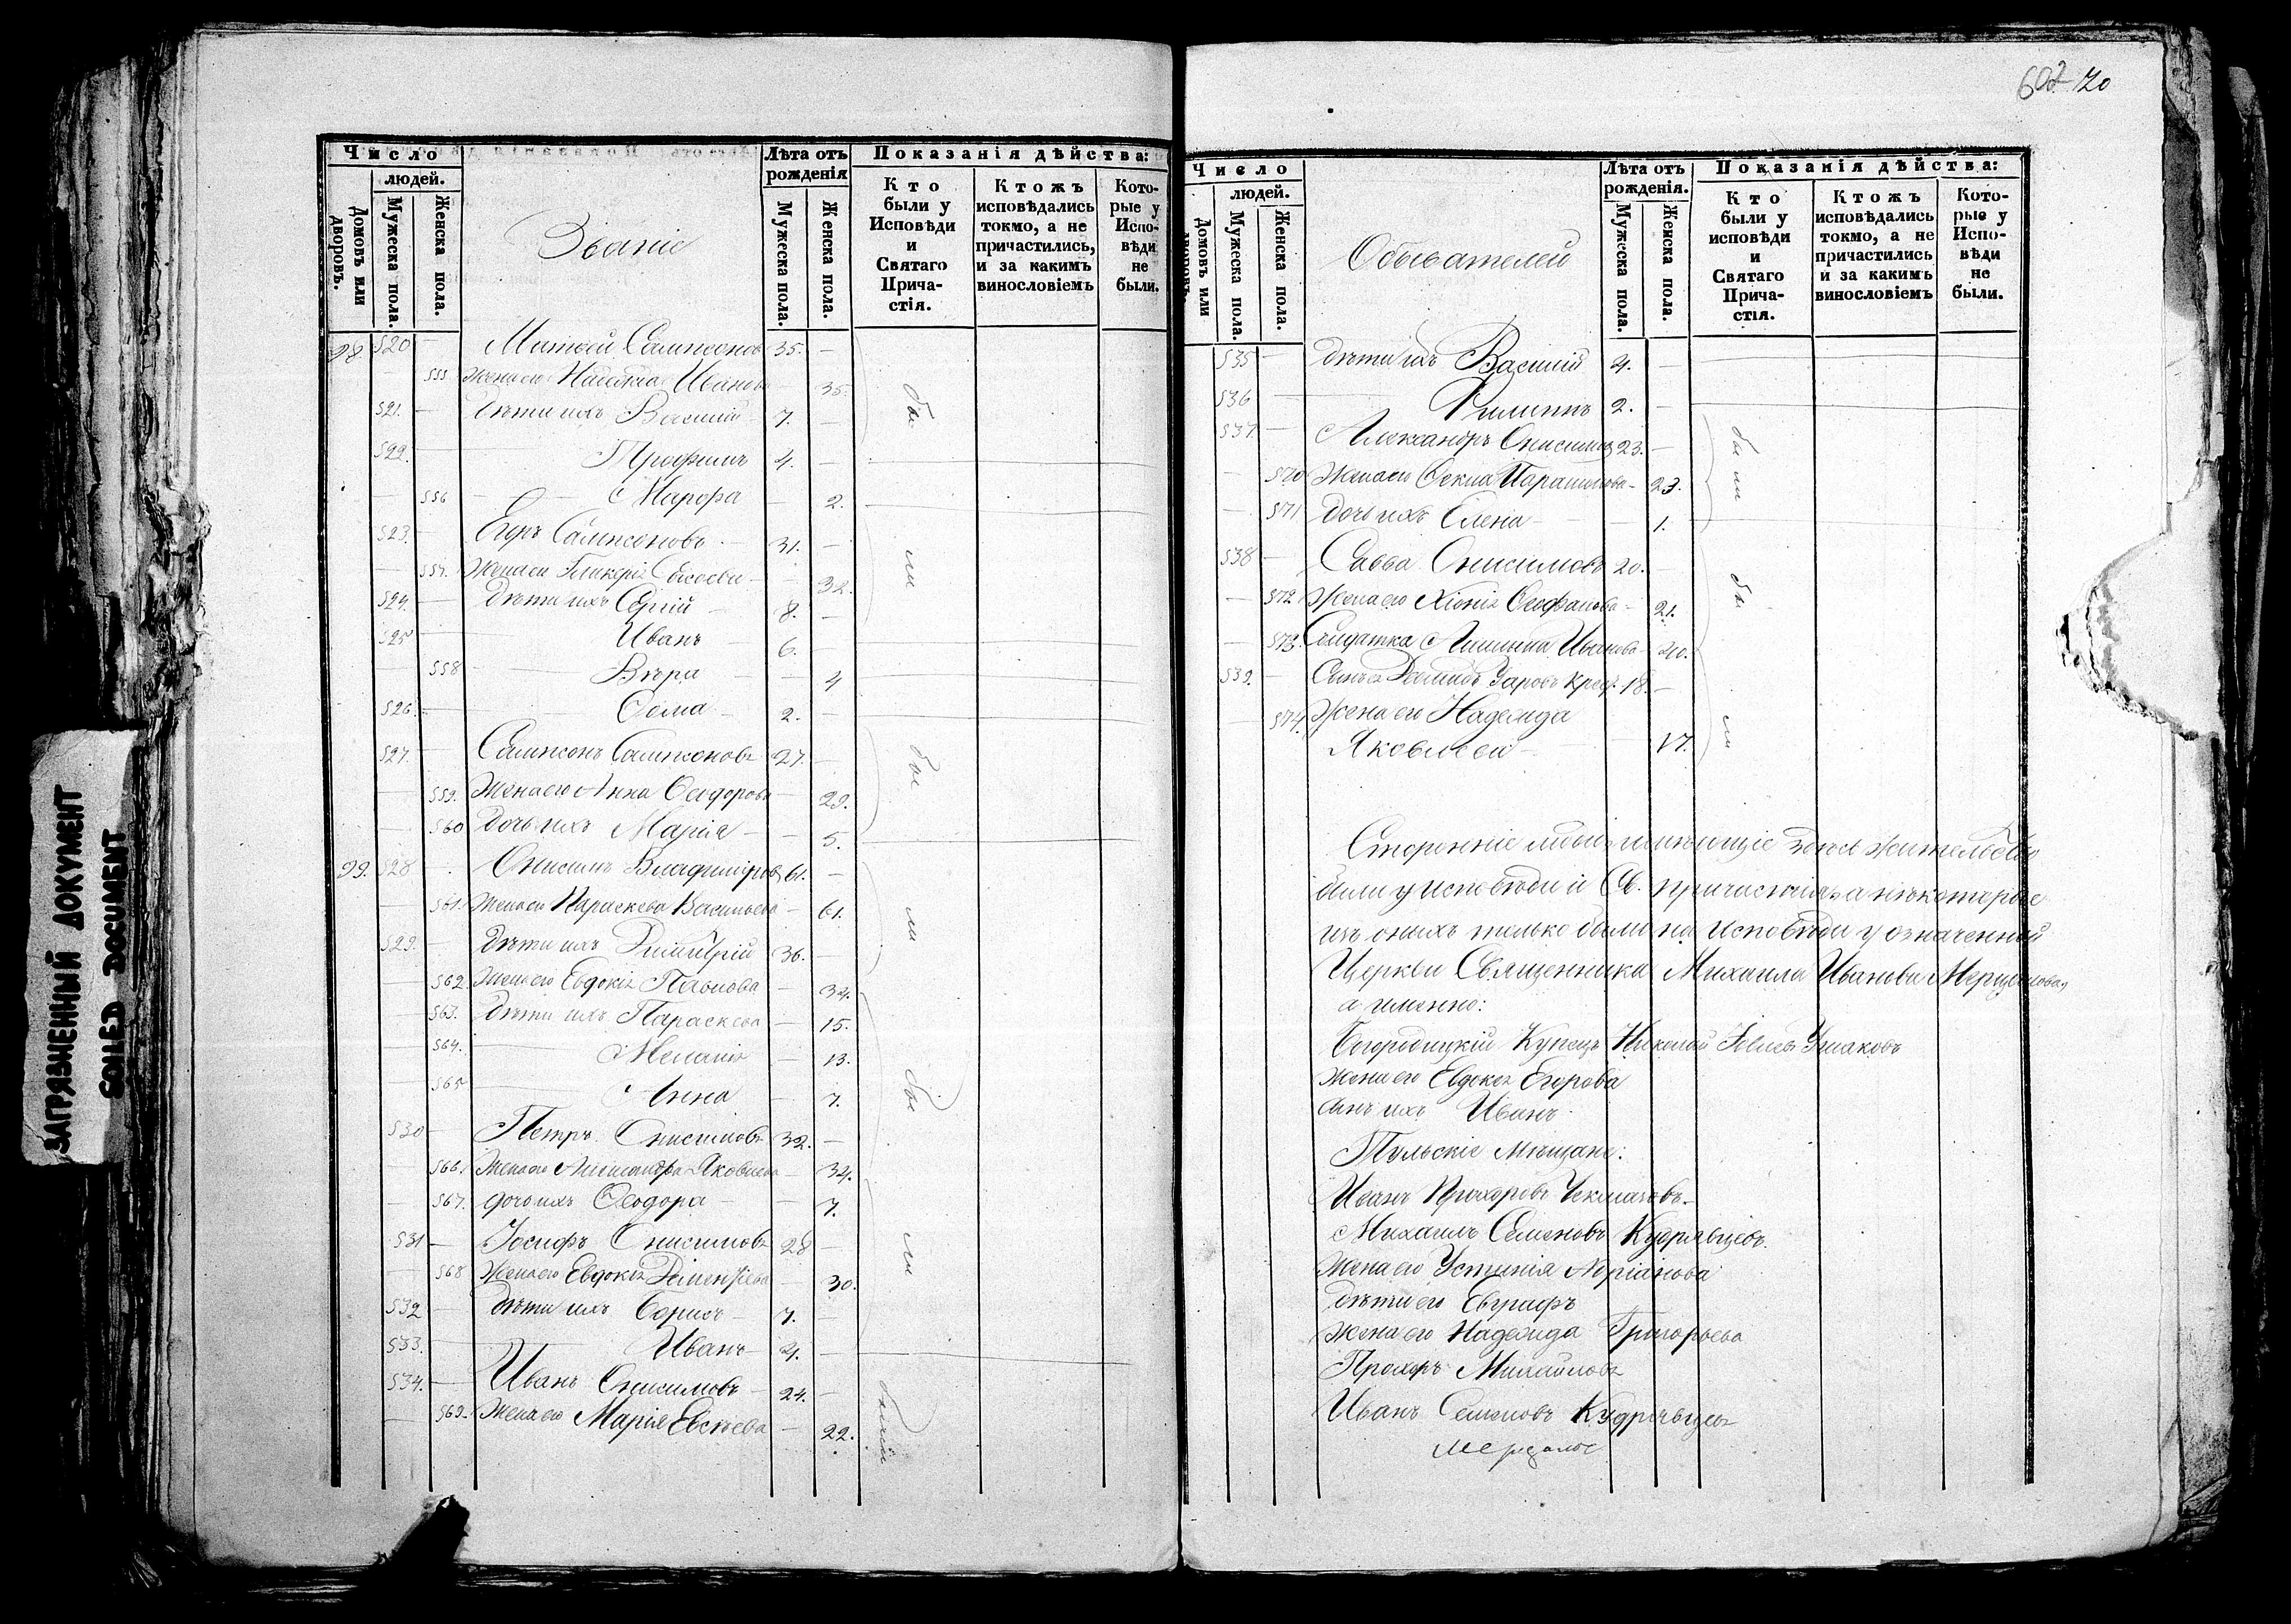 607 70
ЗАГРЯЗНЕННЫЙ ДОКУМЕНТ
SOILED DOCUMENT
Число
людей.
Домовъ или дворовъ.
Мужеска пола.
Женска пола.
Званіе
Лѣта отъ рожденія
Мужеска пола.
Женска пола.
Показанія дѣйства:
Кто были у Исповѣди и Святаго Прича-стія.
Ктожъ исповѣдались токмо, а не причастились, и за какимъ винословіемъ
Кото-рые у Испо-вѣди не были.
520 — 35. —
555 жена его Ивано 35.
521. — дѣти ихъ Василій 7. —
522. — Трофимъ 4. —
— 556 — Марфа — 2.
523. — Егоръ Сампсоновъ — 31. —
— 557. жена его Гликерія — 32.
524. — дѣти ихъ Сергій — 8. —
525 Иванъ 6. —
— 558 — Вѣра — 4
526. — 2. —
527. — Сампсонъ Сампсоновъ 27. —
— 559. жена его Анна Ѳеодорова — 29.
— 560 дочь ихъ Марія — 5.
99. 528 — Онисимъ Владиміровъ 61. —
— 561. жена его Параскева Васильева — 61.
529. — дѣти ихъ Димитрій 36. —
— 562 жена его Евдокія Павлова — 34.
— 563. дѣти ихъ Параскева — 15.
— 564. Меланія — 13.
— 565 Анна — 7.
530 — Петръ Онисимовъ 32. —
— 566. жена его Яковлева — 34.
— 567. дочь ихъ Ѳеодора — 7.
531 — Іосифъ Онисимовъ 28 —
— 568 жена его Евдокія — 30.
532 — дѣти ихъ Борисъ 7. —
533. — Иванъ —
534. — Иванъ Онисимовъ 24. —
— 569. жена его Марія Евсѣева — 22.
бы
ли
бы
ли
бы
ли
Число
людей.
Домовъ или дворовъ.
Мужеска пола.
Женска пола.
Обывателей
Лѣта отъ рожденія.
Мужеска пола.
Женска пола.
Показанія дѣйства:
Кто были у исповѣди и Святаго Прича-стія.
Ктожъ исповѣдались токмо, а не причастились и за какимъ винословіемъ
Кото-рые у Испо-вѣди не были.
535 — дѣти ихъ Василій 4. —
536 — Филиппъ 2. —
537. — Александръ Онисимовъ 23. —
— 570 жена его Ѳекла — 23.
— 571 дочь ихъ Елена — 1.
538 — Савва Онисимовъ 20. —
— 572 жена его Хіонія — 21.
— 573. Солдатка Иванова — 40.
539. — Сынъ ея 18. —
— 574. жена его Надежда
Яковлева — 17.
бы ли
бы
ли
Сторонніе люди, имѣющіе здѣсь жительство
были у исповѣди и Св. причастія, а нѣкоторые
изъ оныхъ только были на исповѣди у означенной
Церкви Священника Михаила Иванова
а именно:
Богородицкій Купецъ Николай Ушаковъ
жена его Евдокія Егорова
сынъ ихъ Иванъ
Тульскіе Мѣщане:
Иванъ Прохоровъ
Михаилъ Семеновъ Кудрявцевъ.
жена его Устинія Адріанова
дѣти его Евграфъ
жена его Надежда Григорьева
Прохоръ Михайловъ
Иванъ Семеновъ Кудрявцевъ